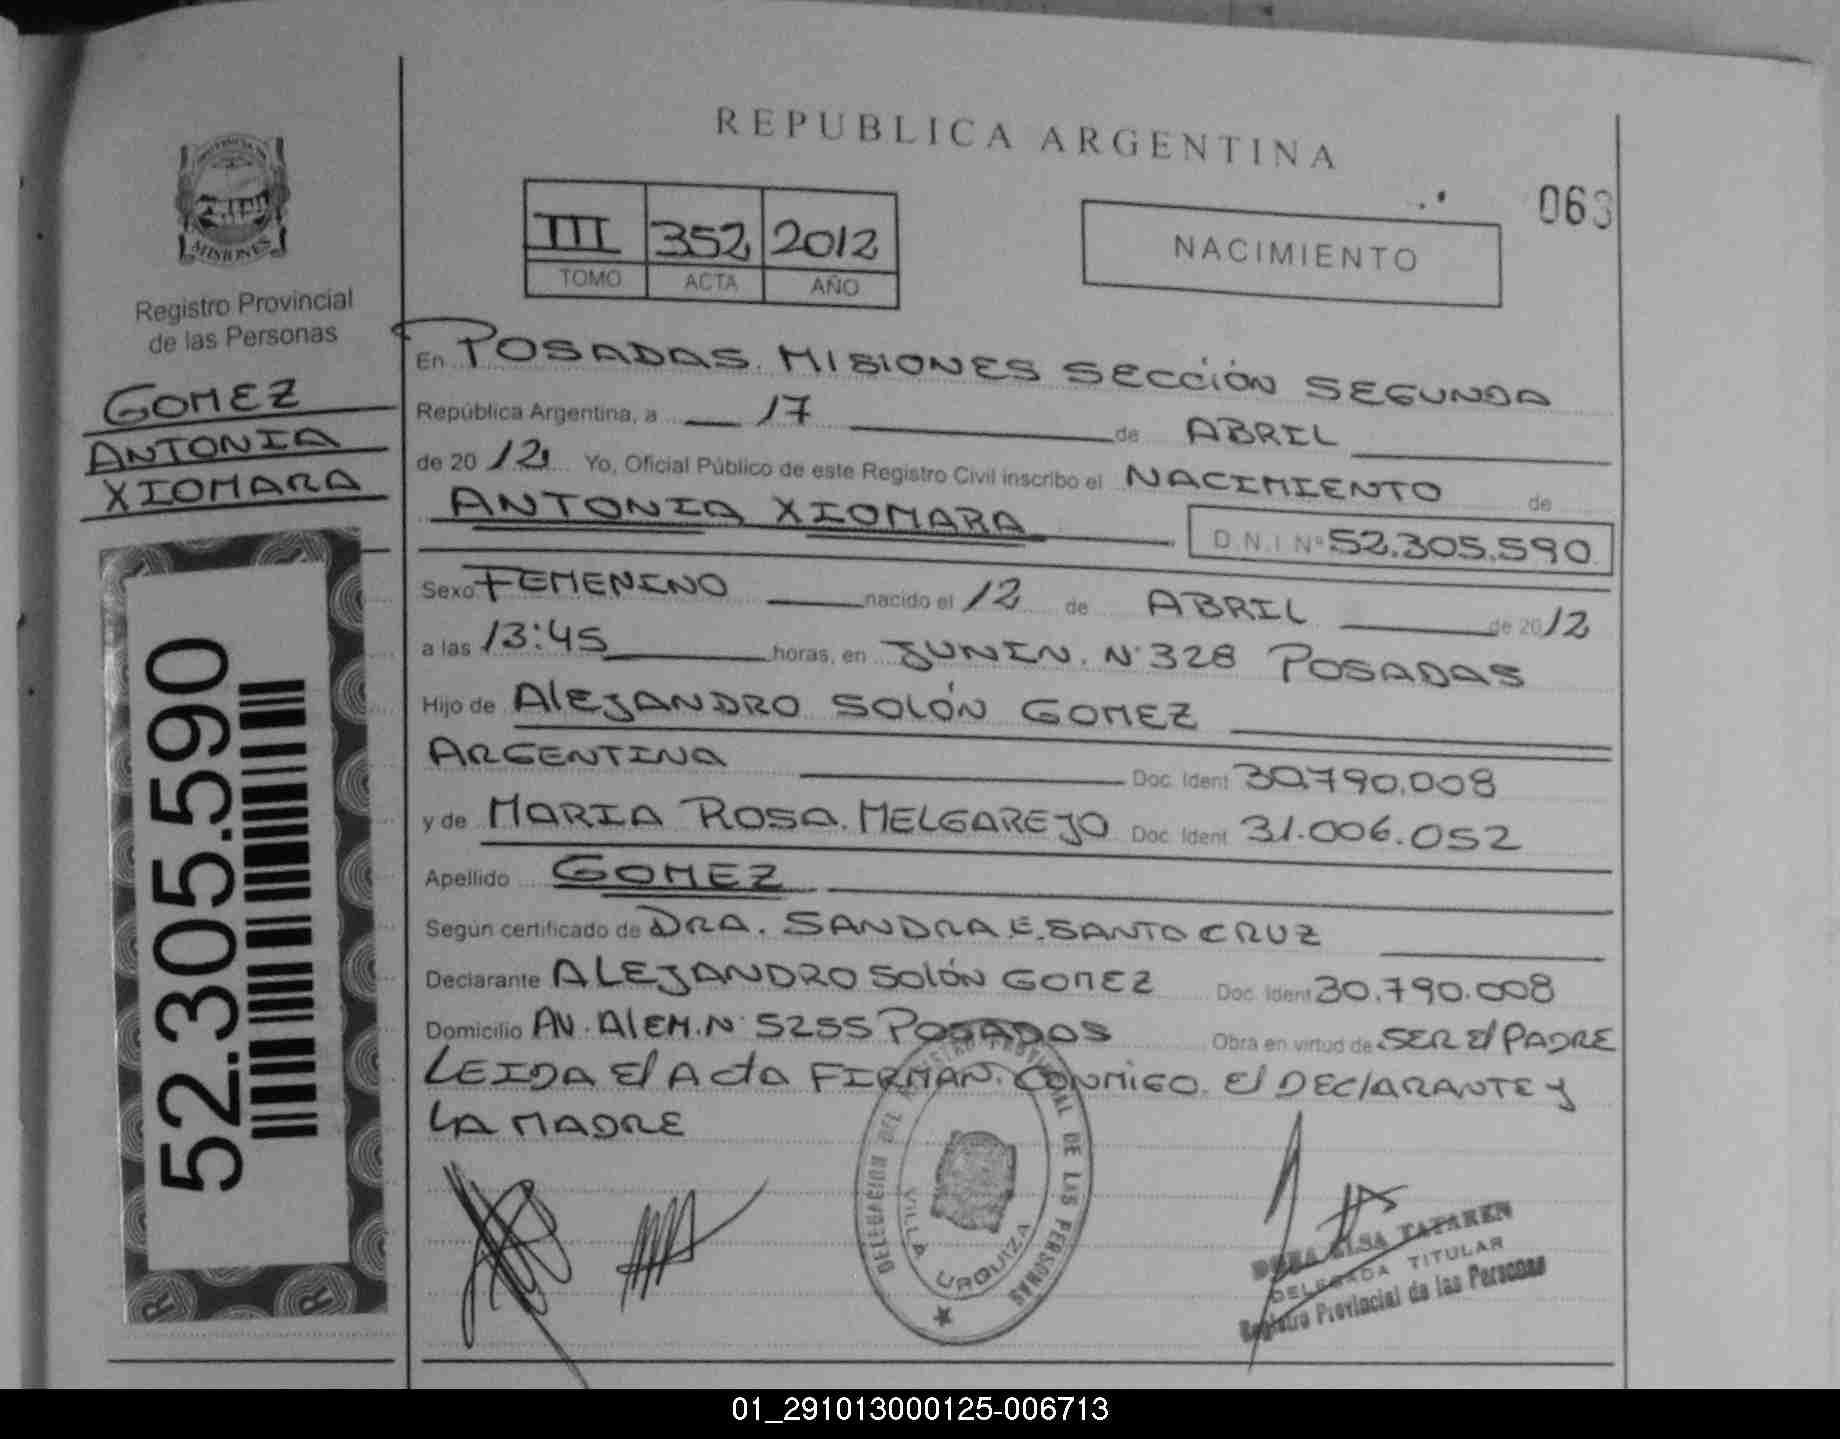 REPUBLICA ARGENTINA
063
III 352 2012
TOMO ACTA AÑO
NACIMIENTO
PROVINCIA DE
MISIONES
Registro Provincial
de las Personas
GOMEZ
ANTONIA
XIOMARA
52.305.590
En POSADAS. MISIONES SECCIÓN SEGUNDA
República Argentina, a 17 de ABRIL
de 2012 Yo, Oficial Público de este Registro Civil inscribo el NACIMIENTO de
ANTONIA XIOMARA D.N.I Nº 52.305.590
Sexo FEMENINO nacido el 12 de ABRIL de 2012
a las 13:45 horas, en JUNIN. Nº 328 POSADAS
Hijo de ALEJANDRO SOLÓN GOMEZ
ARGENTINA Doc. Ident 30.790.008
y de MARIA ROSA. MELGAREJO Doc. Ident. 31.006.052
Apellido GOMEZ
Según certificado de DRA. SANDRA E. SANTA CRUZ
Declarante ALEJANDRO SOLÓN GOMEZ Doc. Ident 30.790.008
Domicilio AV. ALEM. Nº 5255 POSADAS Obra en virtud de SER El PADRE
LEIDA El Acta FIRMAN. CONMIGO. El DEClARANTE y
LA MADRE
DELEGACION DEL REGISTRO PROVINCIAL DE LAS PERSONAS
VILLA URQUIZA
ELSA
DELEGADA TITULAR
Registro Provincial de las Personas
01_291013000125-006713